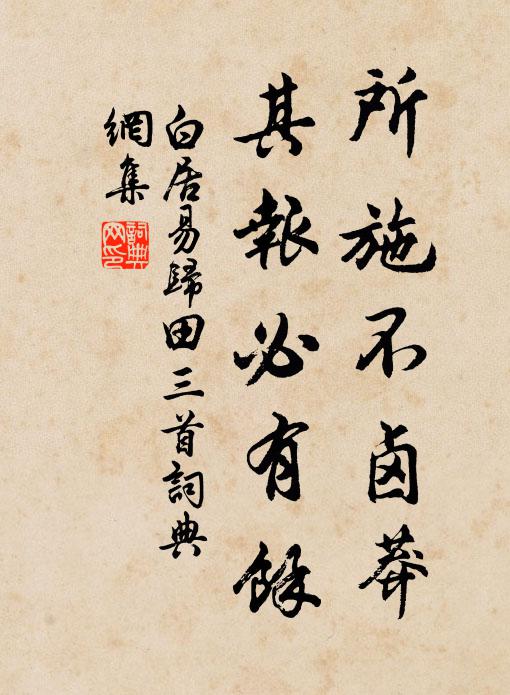 所施不鹵莽
其報必有餘
白居易歸田三首詞典
網集
詞典
网印